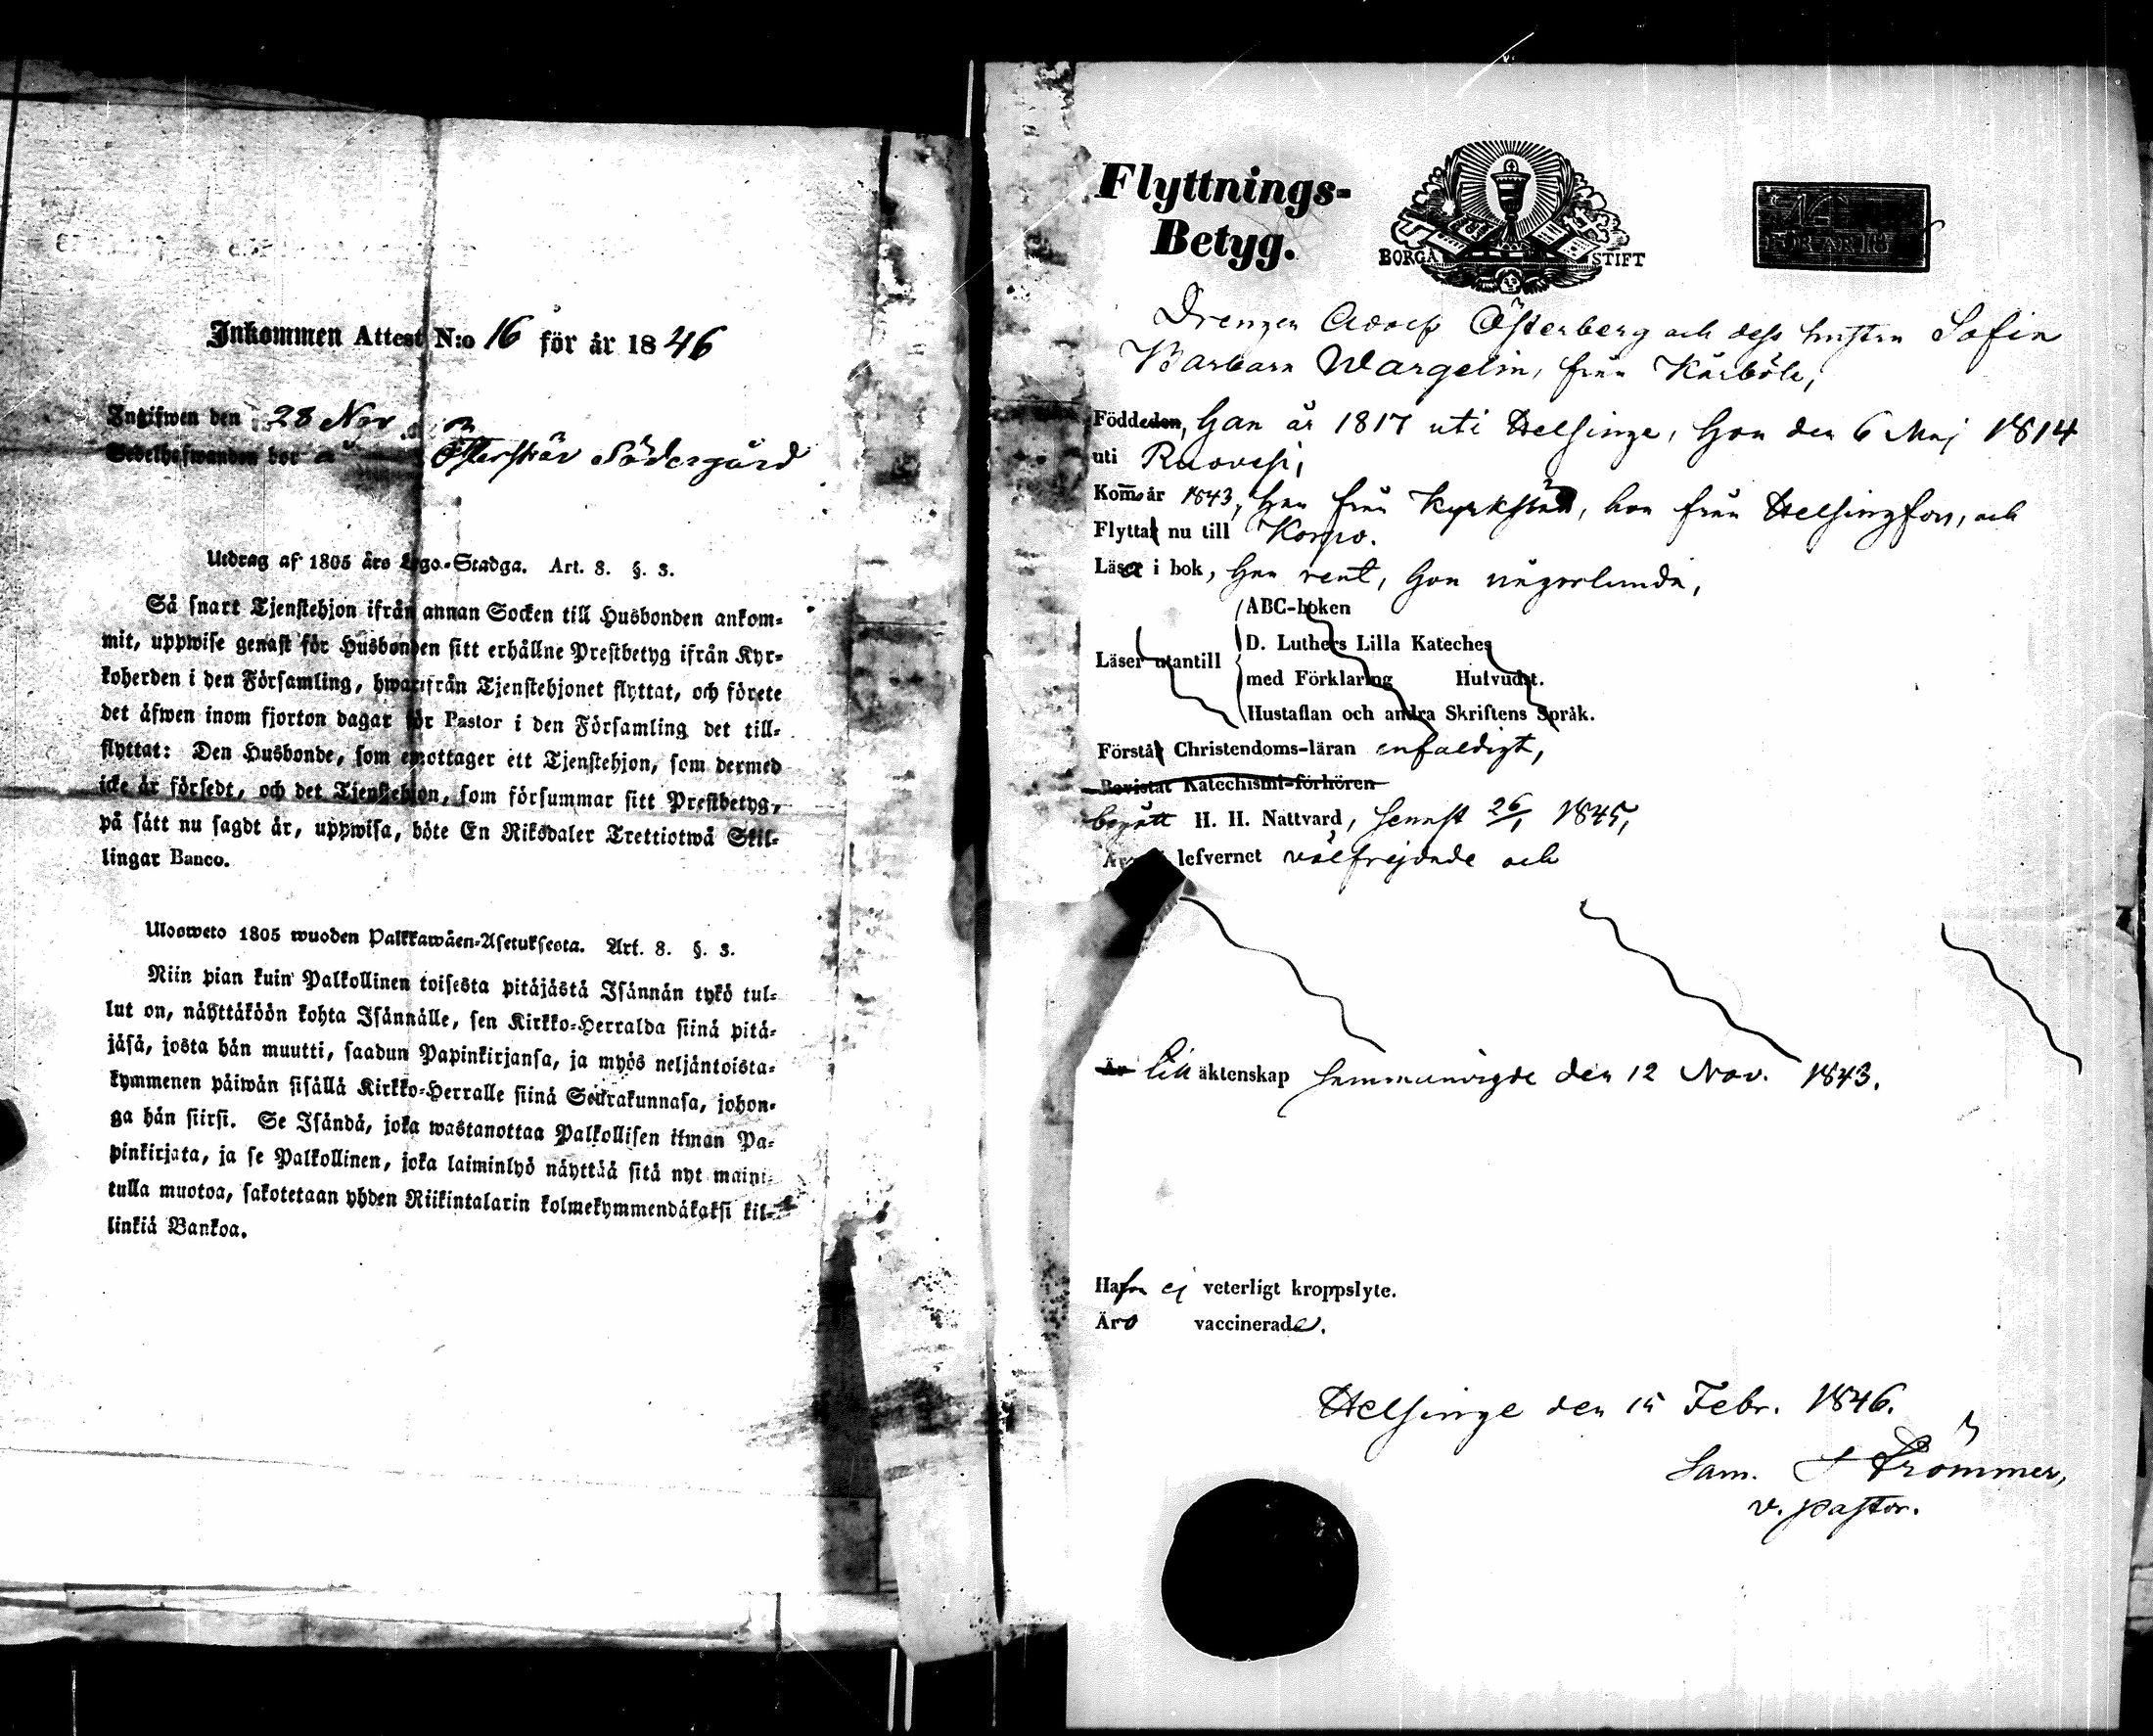 Inkommen Attest N:o 16 för år 1846
Ingifwen den 28 Nov
Sedelhafwanden bor å Österskär Södergård
Utdrag af 1805 års Lego-Stadga. Art. 8. §. 3.
Så snart Tjenstehjon ifrån annan Socken till Husbonden ankom-
mit, uppwise genast för Husbonden sitt erhållne Prestbetyg ifrån Kyr-
koherden i den Församling, hwarifrån Tjenstehjonet flyttat, och förete
det äfwen inom fjorton dagar för Pastor i den Församling det till-
flyttat: Den Husbonde, som emottager ett Tjenstehjon, som dermed
icke är försedt, och det Tjenstehjon, som försummar sitt Prestbetyg,
på sätt nu sagdt är, uppwisa, böte En Riksdaler Trettiotwå Skil-
lingar Banco.
Ulosweto 1805 wuoden Palkkawäen-Asetuksesta. Art. 8. §. 3.
Niin pian kuin Palkollinen toisesta pitäjästä Isännän tykö tul-
lut on, näyttäköön kohta Isännälle, sen Kirkko-Herralda siinä pitä-
jäsä, josta hän muutti, saadun Papinkirjansa, ja myös neljäntoista-
kymmenen päiwän sisällä Kirkko-Herralle siinä Seurakunnasa, johon-
ga hän siirsi. Se Isändä, joka wastanottaa Palkollisen ilman Pa-
pinkirjata, ja se Palkollinen, joka laiminlyö näyttää sitä nyt maini-
tulla muotoa, sakotetaan yhden Riikintalarin kolmekymmendäkaksi kil-
linkiä Bankoa.
Flyttnings-
Betyg.
BORGÅ STIFT
Drengen Adolf Österberg och dess hustru Sofia
Barbara Wargelin, från Kårböle,
Födde den, Han år 1817 uti Helsinge, Hon den 6 Maj 1814
uti Ruovesi,
Kom̅o år 1843, han från Kyrkslätt, hon från Helsingfors, och
Flytta nu till Korpo.
Läsa i bok, Han rent, Hon någorlunda,
ABC-boken
D. Luthers Lilla Kateches
Läser utantill
med Förklaring Hufvudst.
Hustaflan och andra Skriftens Språk.
Förstå Christendoms-läran enfaldigt,
Bevistat Katechismi-förhören
begått H. H. Nattvard, senast 26/1 1845,
lefvernet välfrejdade och
Är till äktenskap sammanvigde den 12 Nov. 1843.
Hafva ej veterligt kroppslyte.
Äro vaccinerade.
Helsinge den 15 Febr. 1846.
Sam. Strömmer,
v. pastor.